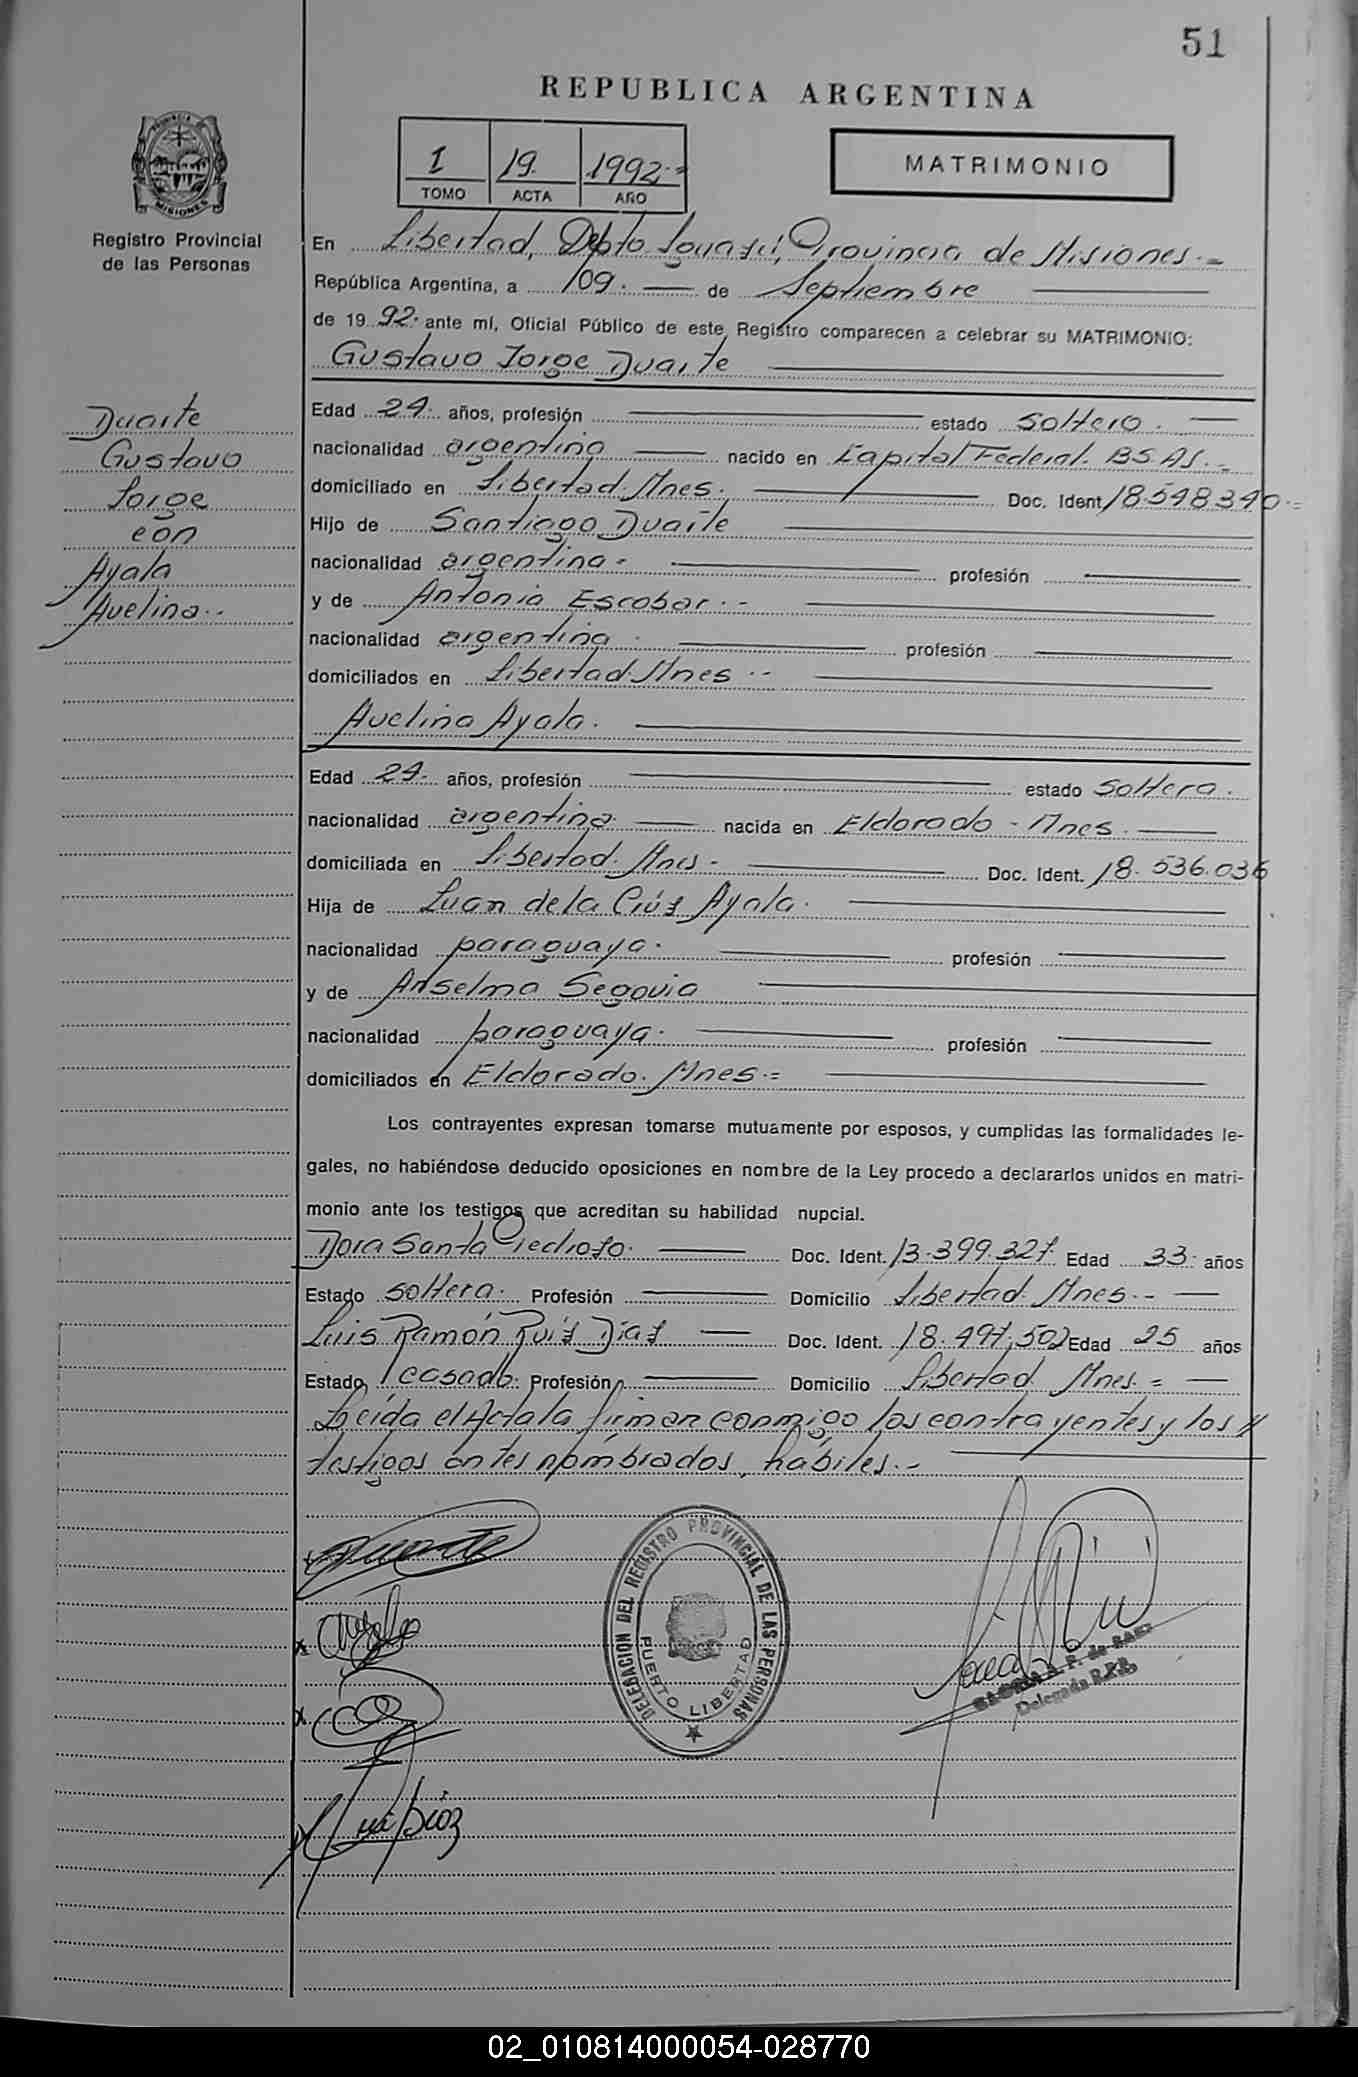 51
REPUBLICA ARGENTINA
I 19. 1992.=
TOMO ACTA AÑO
MATRIMONIO
PROVINCIA DE MISIONES
Registro Provincial
de las Personas
En Libertad, Depto Iguazú, Provincia de Misiones.=
República Argentina, a 09. de Septiembre
de 1992. ante mí, Oficial Público de este Registro comparecen a celebrar su MATRIMONIO:
Gustavo Jorge Duarte
Duarte
Gustavo
Jorge
con
Ayala
Avelina..
Edad 24. años, profesión estado soltero.
nacionalidad argentina nacido en Capital Federal. BS.AS.-
domiciliado en Libertad. Mnes. Doc. Ident. 18.598.390.=
Hijo de Santiago Duarte
nacionalidad argentina. profesión
y de Antonia Escobar.-
nacionalidad argentina. profesión
domiciliados en Libertad. Mnes..
Avelina Ayala.
Edad 24. años, profesión estado soltera.
nacionalidad argentina. nacida en Eldorado - Mnes.
domiciliada en Libertad. Mnes.- Doc. Ident. 18.536.036
Hija de Juan de la Crúz Ayala.
nacionalidad paraguaya. profesión
y de Anselma Segovia
nacionalidad paraguaya. profesión
domiciliados en Eldorado. Mnes.=
Los contrayentes expresan tomarse mutuamente por esposos, y cumplidas las formalidades le-
gales, no habiéndose deducido oposiciones en nombre de la Ley procedo a declararlos unidos en matri-
monio ante los testigos que acreditan su habilidad nupcial.
Dora Santa Piedrozo. Doc. Ident. 13.399.327. Edad 33. años
Estado soltera. Profesión Domicilio Libertad. Mnes.-
Luis Ramón Ruíz Díaz Doc. Ident. 18.497.502 Edad 25 años
Estado casado. Profesión Domicilio Libertad. Mnes.=
Leída el Acta la firman conmigo los contrayentes y los //
testigos antes nombrados, hábiles.-
DELEGACION DEL REGISTRO PROVINCIAL DE LAS PERSONAS
PUERTO LIBERTAD
Delegada R.P.P.
02_010814000054-028770